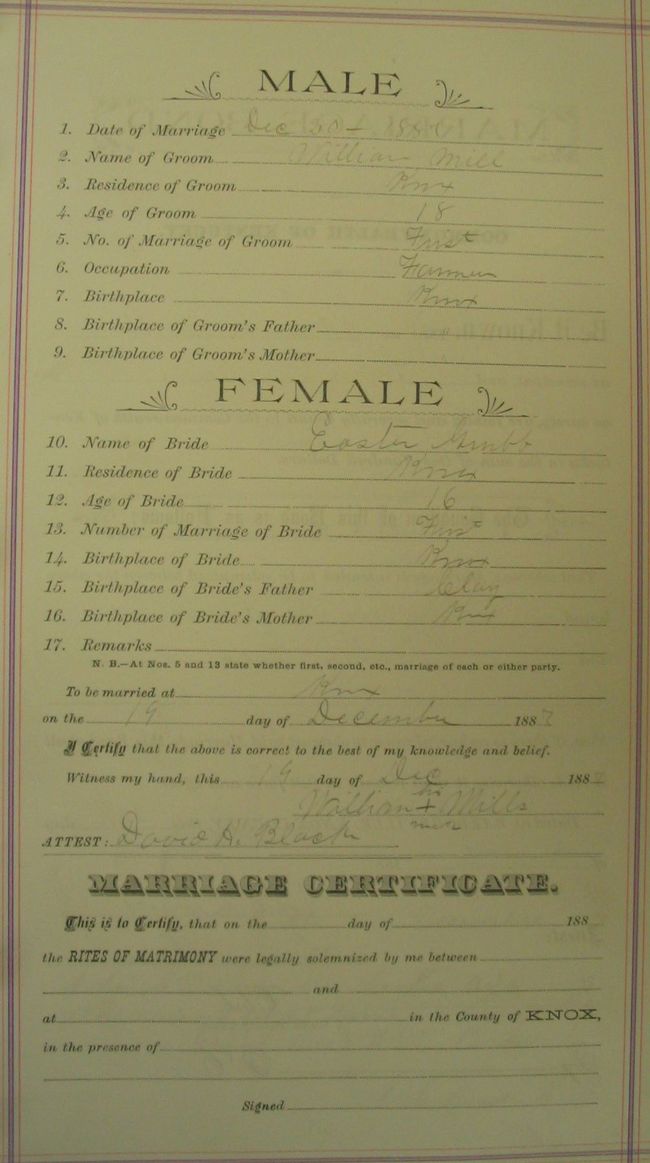 MALE
1. Date of Marriage Dec 30
2. Name of Groom William Mill
3. Residence of Groom Knox
4. Age of Groom 18
5. No. of Marriage of Groom First
6. Occupation Farmer
7. Birthplace Knox
8. Birthplace of Groom's Father
9. Birthplace of Groom's Mother
FEMALE
10. Name of Bride Easter Grubb
11. Residence of Bride Knox
12. Age of Bride 16
13. Number of Marriage of Bride First
14. Birthplace of Bride Knox
15. Birthplace of Bride's Father Clay
16. Birthplace of Bride's Mother Knx
17. Remarks
N. B.—At Nos. 5 and 13 state whether first, second, etc., marriage of each or either party.
To be married at Knx
on the 19 day of December 1887
I Certify that the above is correct to the best of my knowledge and belief.
Witness my hand, this 19 day of Dec 188
his
William + Mills
mark
ATTEST: David H. Black
MARRIAGE CERTIFICATE.
This is to Certify, that on the day of 188
the RITES OF MATRIMONY were legally solemnized by me between
and
at in the County of KNOX,
in the presence of
Signed